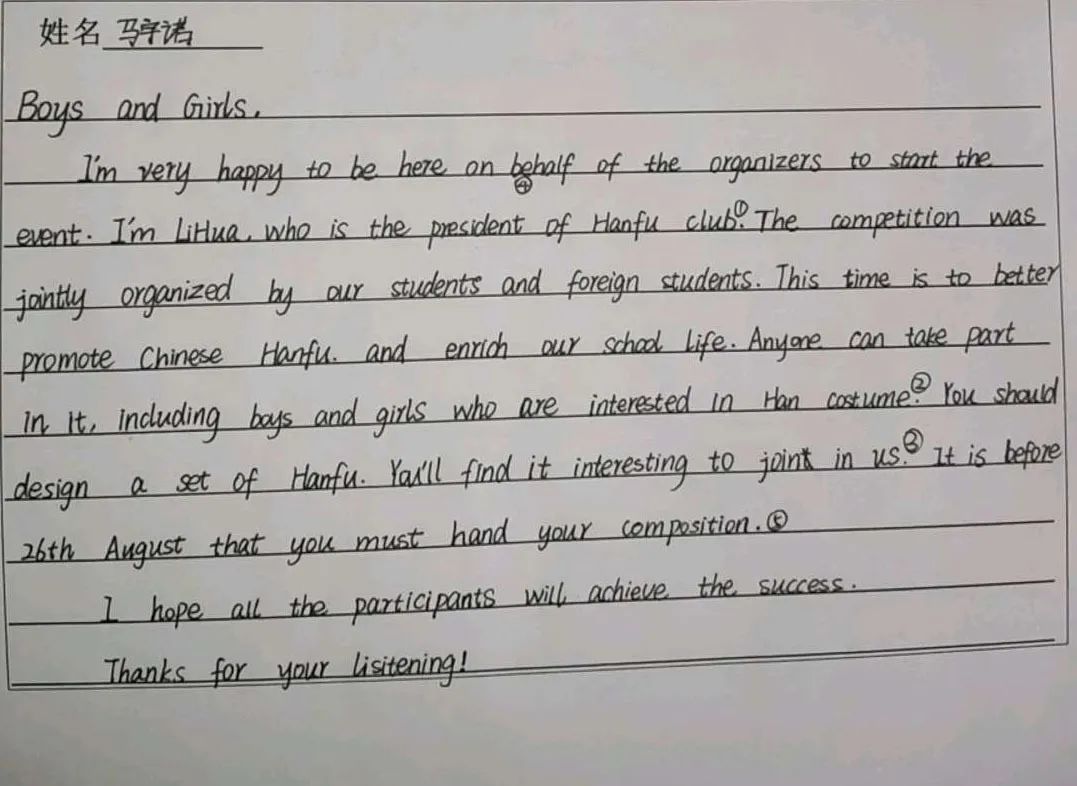 姓名 马宇诺
Boys and Girls,
I'm very happy to be here on behalf of the organizers to start the
④
event. I'm LiHua, who is the president of Hanfu club.① The competition was
jointly organized by our students and foreign students. This time is to better
promote Chinese Hanfu. and enrich our school life. Anyone can take part
in it, including boys and girls who are interested in Han costume.② You should
design a set of Hanfu. You'll find it interesting to joint in us.③ It is before
26th August that you must hand your composition.⑤
I hope all the participants will achieve the success.
Thanks for your lisitening!